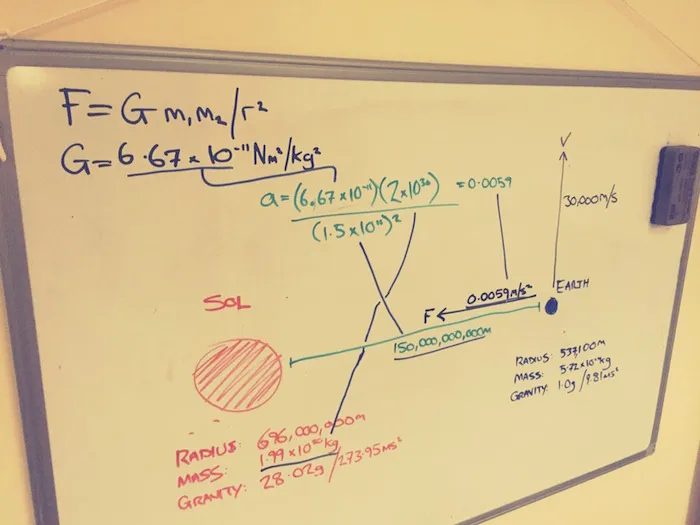 F = G m₁m₂/r²
G = 6.67 × 10⁻¹¹ Nm²/kg²
a = (6.67 × 10⁻¹¹)(2 × 10³⁰) = 0.0059
(1.5 × 10¹¹)²
V
30,000m/s
EARTH
0.0059m/s²
F
150,000,000,000m
SOL
RADIUS:
MASS:
GRAVITY: 1.0g / 9.81ms²
RADIUS: 696,000,000m
MASS: 1.99 × 10³⁰ kg
GRAVITY: 28.02g / 273.95ms²